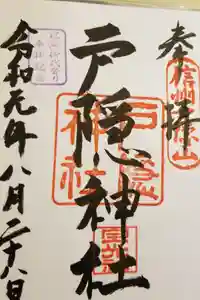 奉拝
信州戸隠山
戸隠神社
戸隠神社
令和元年八月二十八日